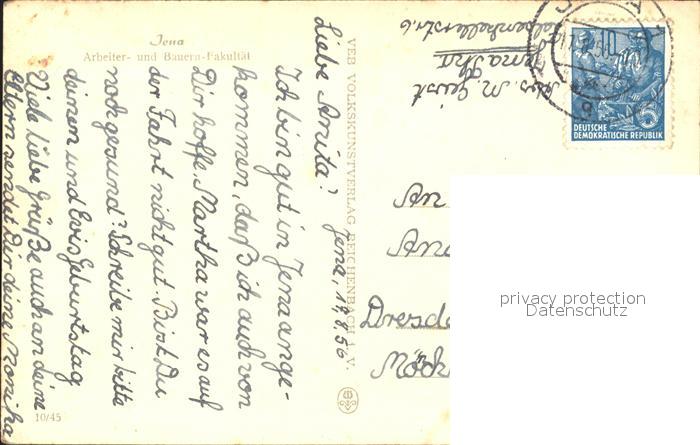 Jena
Arbeiter- und Bauern-Fakultät
Jena, 17.8.56
Liebe Anita!
Ich bin gut in Jena ange-
kommen, daß ich auch von
Dir hoffe. Martha war es auf
der Fahrt nicht gut. Bist Du
noch gesund? Schreibe mir bitte
deinen und Evis Geburtstag
Viele liebe Grüße auch an deine
Eltern sendet Dir deine Monika
10/45
VEB VOLKSKUNSTVERLAG REICHENBACH i. V.
Abs. M. Geist
Jena
10
5
DEUTSCHE
DEMOKRATISCHE REPUBLIK
An
Dresde
Möck
privacy protection
Datenschutz